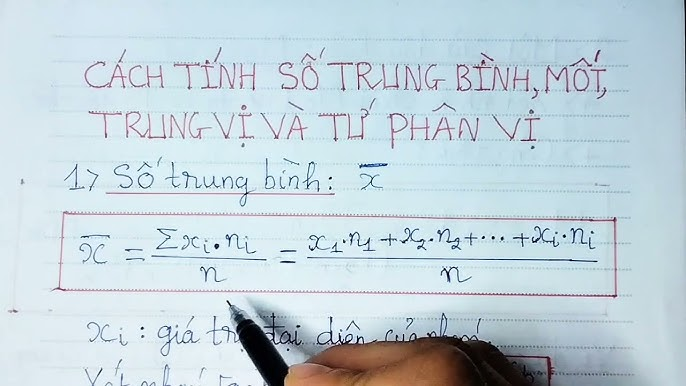 CÁCH TÍNH SỐ TRUNG BÌNH, MỐT,
TRUNG VỊ VÀ TỨ PHÂN VỊ
1> Số trung bình: x̅
x̅ = Σxᵢ.nᵢ / n = x₁.n₁ + x₂.n₂ + ... + xᵢ.nᵢ / n
xᵢ: giá trị đại diện của nhóm